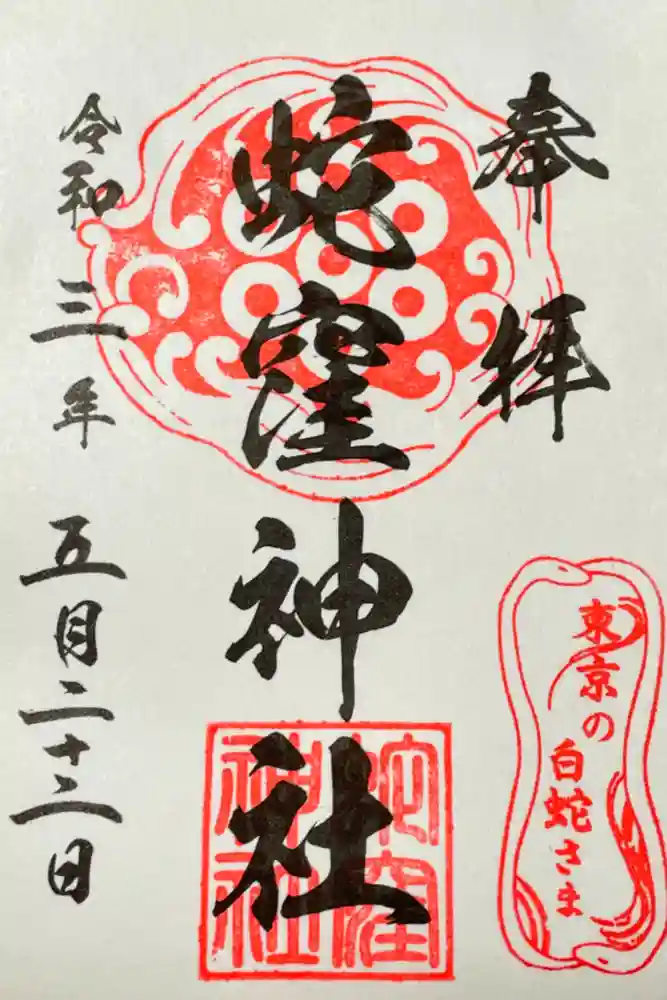 奉拝
東京の
白蛇さま
蛇窪神社
蛇窪
神社
令和三年
五月二十二日